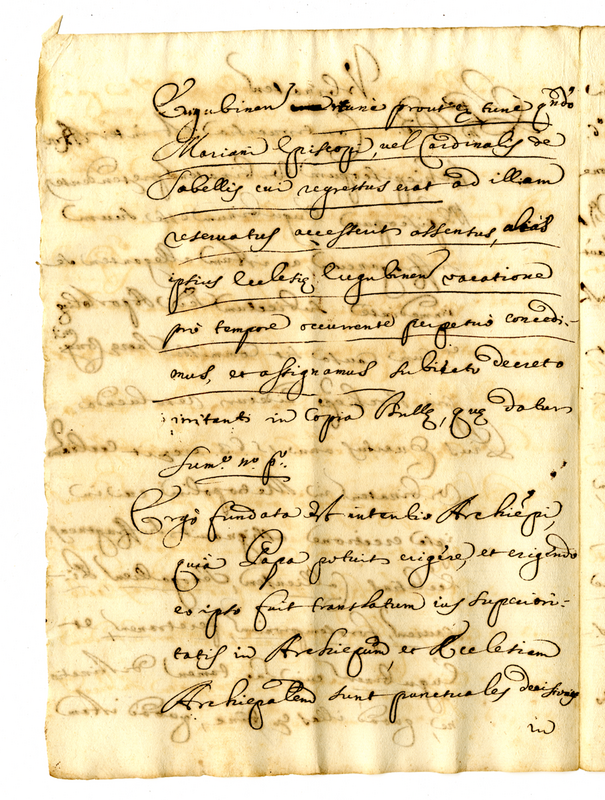 Eugubinen tunc prout ex tunc qndo
Mariani Episcopi, vel Cardinalis de
Tabellis cui regressus erat ad illam
reservatus accesserit assensus, alias
ipsius Ecclesię Eugubinens vacatione
pro tempore occurrente perpetuo concedi-
mus, et assignamus subinde decreto
irritanti in Copia Bullę, quę datur
Sum.º n.º p.º
Ergo fundata est intentio Archiepi,
quia Papa potuit erigere, et erigendo
eo ipso fuit translatum ius superiori-
tatis in Archiepum, et Ecclesiam
Archiepalem sunt punctuales decisiones
in